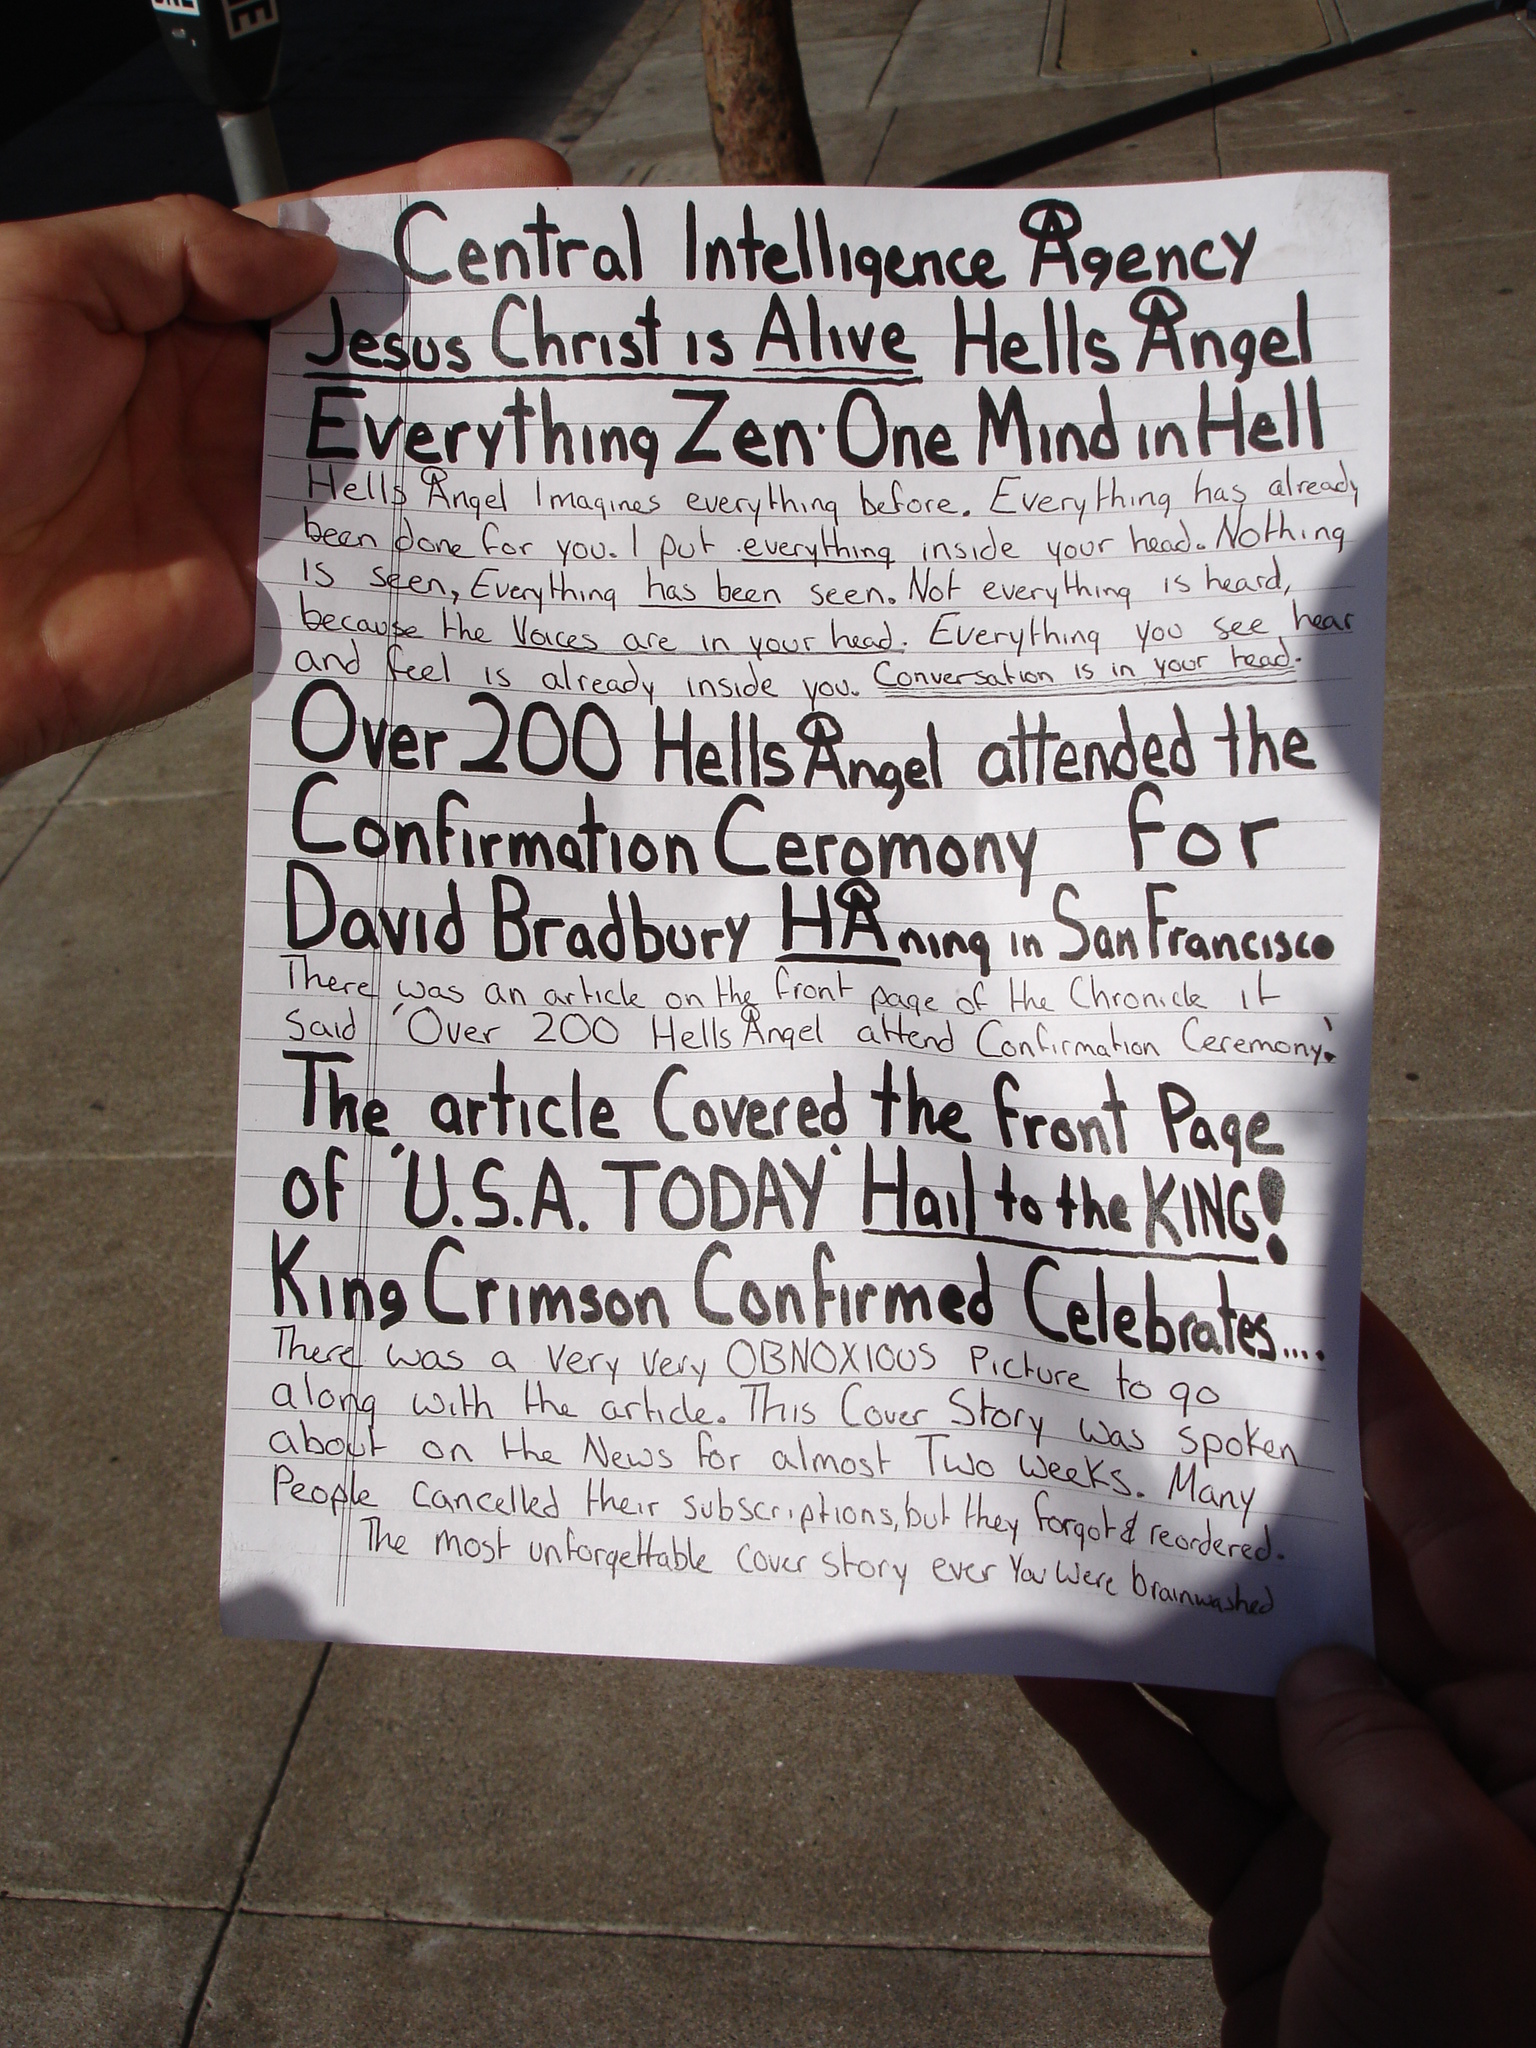 Central Intelligence Agency
Jesus Christ is Alive Hells Angel
Everything Zen · One Mind in Hell
Hells Angel Imagines everything before. Everything has already
been done for you. I put everything inside your head. Nothing
is seen, Everything has been seen. Not everything is heard,
because the Voices are in your head. Everything you see, hear
and feel is already inside you. Conversation is in your head.
Over 200 Hells Angel attended the
Confirmation Ceromony for
David Bradbury HAning in San Francisco
There was an article on the front page of the Chronicle it
said 'Over 200 Hells Angel attend Confirmation Ceremony.'
The article Covered the front Page
of 'U.S.A. TODAY' Hail to the KING!
King Crimson Confirmed Celebrates....
There was a very very OBNOXIOUS Picture to go
along with the article. This Cover Story was spoken
about on the News for almost Two weeks. Many
People cancelled their subscriptions, but they forgot & reordered.
The most unforgettable cover story ever You Were brainwashed